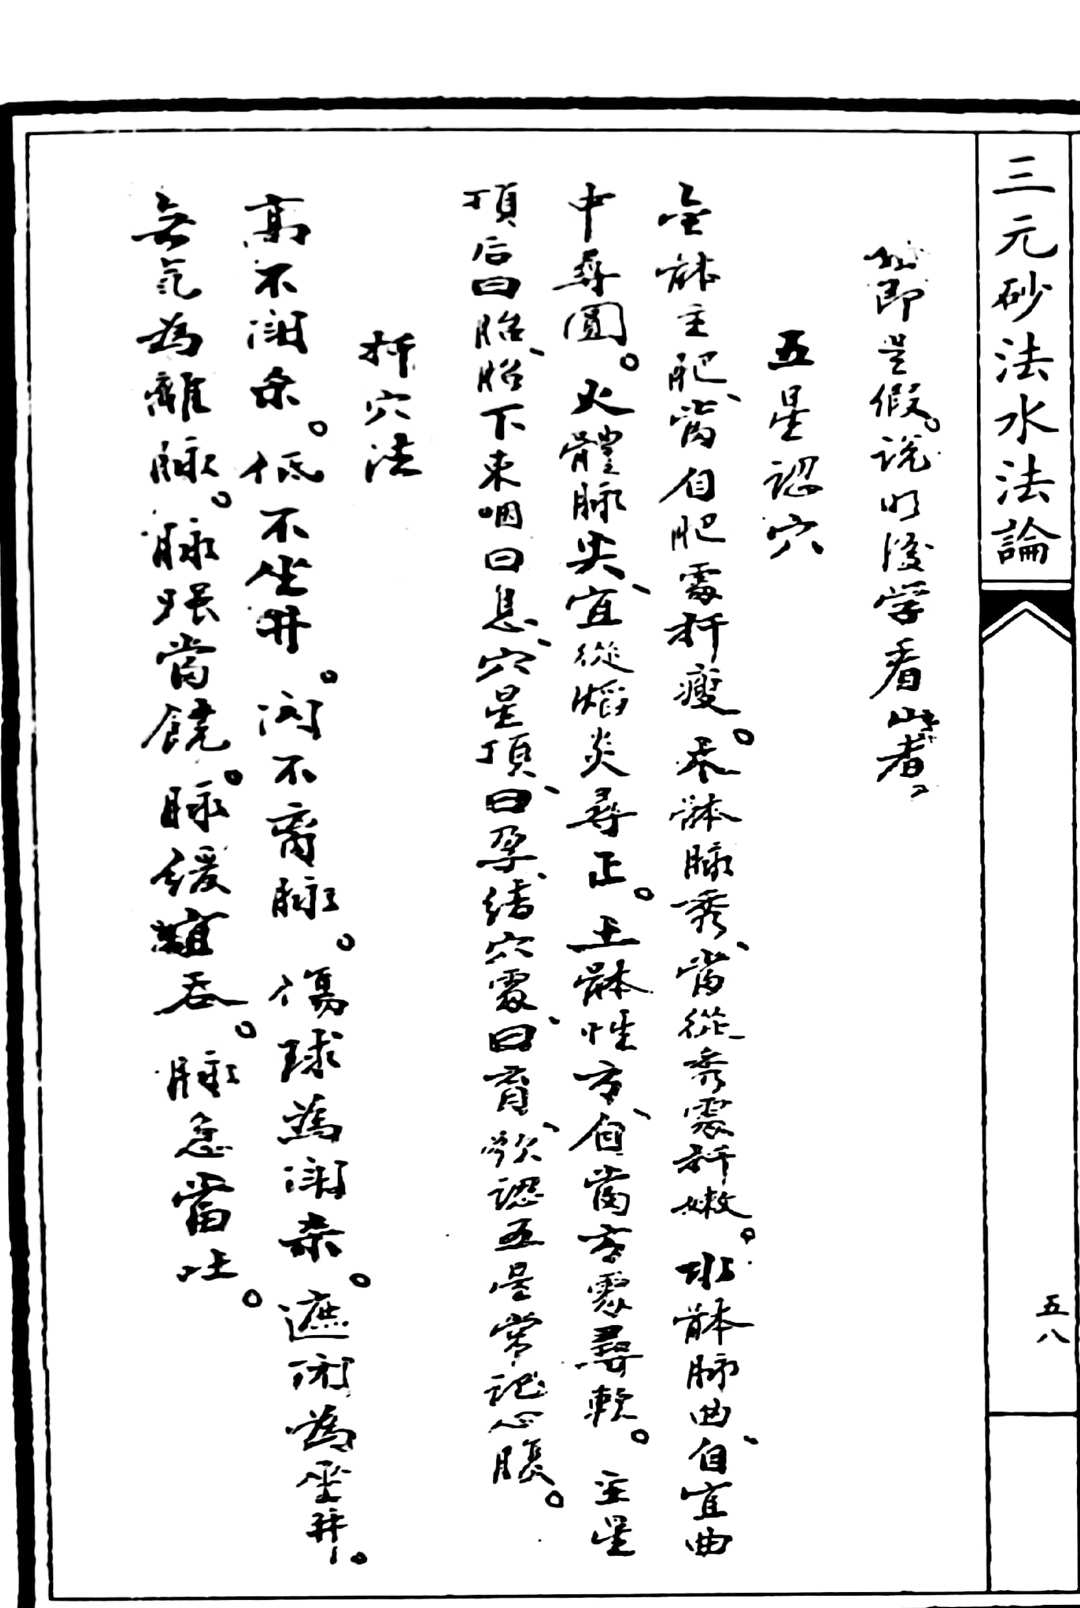 三元砂法水法論
五八
即是假。說明後学看此者。
五星認穴
金體主肥、當自肥處扦瘦。木體脉秀、當從秀處扦嫩。水體脉曲、自宜曲
中尋圓。火體脉尖、宜從焰炎尋正。土體性方、自當方處尋軟。主星
頂后曰胎、胎下来咽曰息、穴星頂、曰孕、結穴處、曰育、欲認五星常記心腹。
扦穴法
高不鬪杀。低不坐井。闪不离脉。傷球為鬪杀。遮闭為坐井。
無氣為離脉。脉强當饒。脉緩宜吞。脉急當吐。